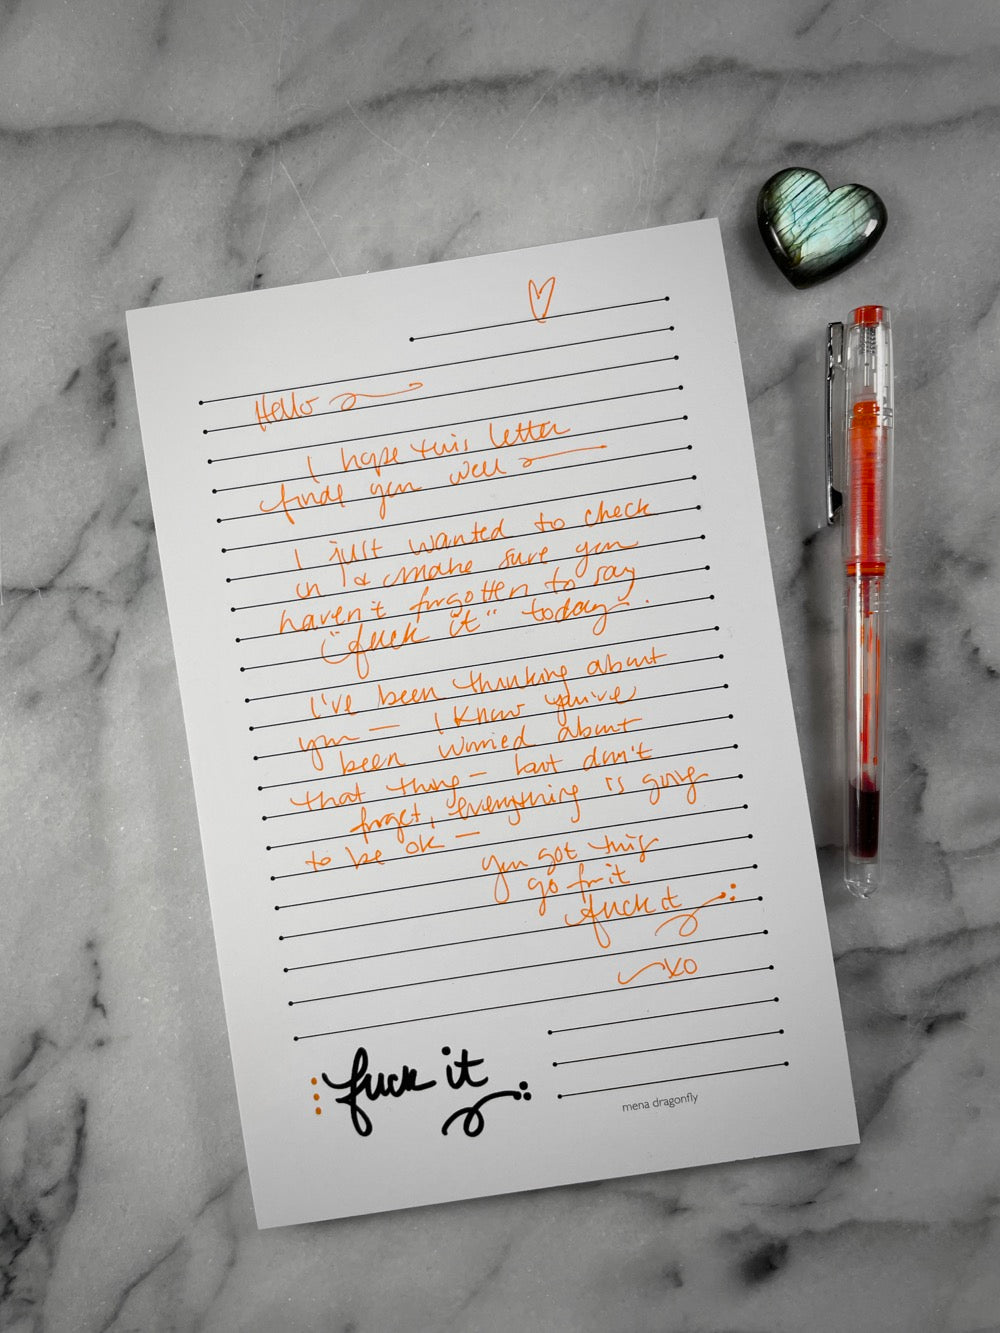 Hello
I hope this letter
finds you well
I just wanted to check
in & make sure you
haven't forgotten to say
"fuck it" today.
I've been thinking about
you — I know you've
been worried about
that thing — but don't
forget, everything is going
to be ok —
you got this
go for it
fuck it
XO
fuck it
mena dragonfly